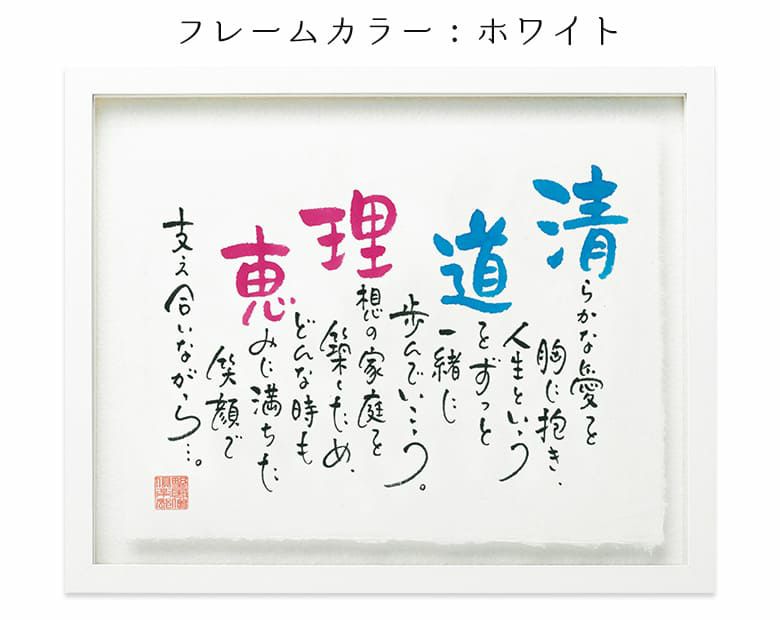 フレームカラー：ホワイト
清らかな愛を
胸に抱き、
人生という
道をずっと
一緒に
歩んでいこう。
理想の家庭を
築くため、
どんな時も
恵みに満ちた
笑顔で
支え合いながら…。